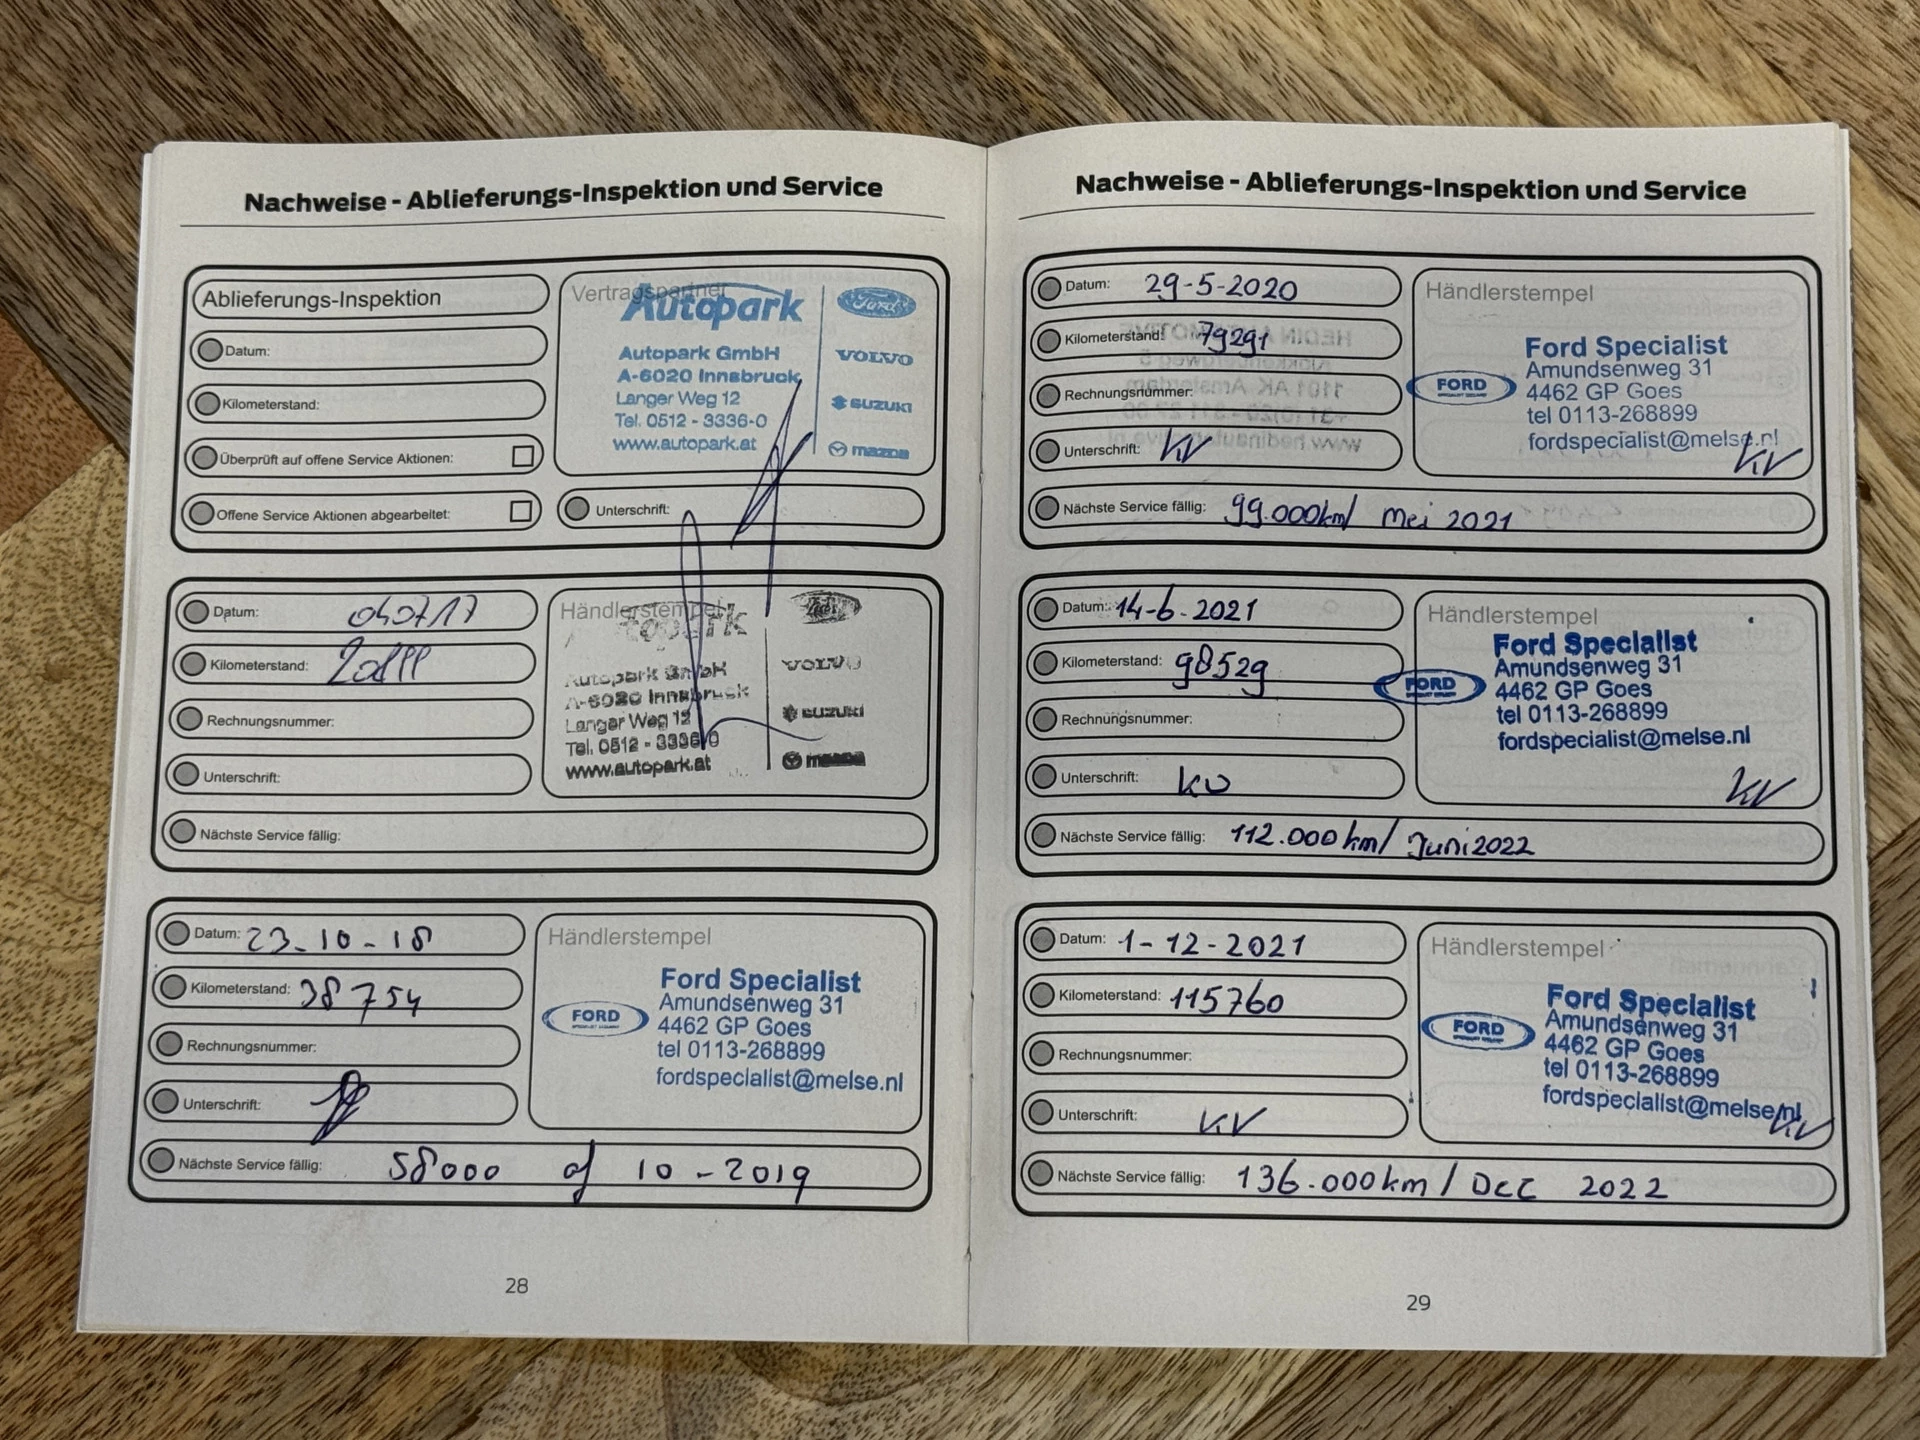 Nachweise - Ablieferungs-Inspektion und Service
Ablieferungs-Inspektion
Datum:
Kilometerstand:
Überprüft auf offene Service Aktionen:
Offene Service Aktionen abgearbeitet:
Vertragspartner
Autopark
Autopark GmbH
A-6020 Innsbruck
Langer Weg 12
Tel. 0512 - 3336-0
www.autopark.at
Ford
VOLVO
SUZUKI
mazda
Unterschrift:
Datum: 040717
Kilometerstand:
Rechnungsnummer:
Unterschrift:
Nächste Service fällig:
Händlerstempel
Autopark GmbH
A-6020 Innsbruck
Langer Weg 12
Tel. 0512 - 3336-0
www.autopark.at
Ford
VOLVO
SUZUKI
mazda
Datum: 23-10-18
Kilometerstand: 38754
Rechnungsnummer:
Unterschrift:
Nächste Service fällig: 58000 of 10-2019
Händlerstempel
FORD
Ford Specialist
Amundsenweg 31
4462 GP Goes
tel 0113-268899
fordspecialist@melse.nl
28
Nachweise - Ablieferungs-Inspektion und Service
Datum: 29-5-2020
Kilometerstand: 79291
Rechnungsnummer:
Unterschrift: KV
Nächste Service fällig: 99.000km/ Mei 2021
Händlerstempel
FORD
Ford Specialist
Amundsenweg 31
4462 GP Goes
tel 0113-268899
fordspecialist@melse.nl
KV
Datum: 14-6-2021
Kilometerstand: 98529
Rechnungsnummer:
Unterschrift: KV
Nächste Service fällig: 112.000km/ Juni 2022
Händlerstempel
FORD
Ford Specialist
Amundsenweg 31
4462 GP Goes
tel 0113-268899
fordspecialist@melse.nl
KV
Datum: 1-12-2021
Kilometerstand: 115760
Rechnungsnummer:
Unterschrift: KV
Nächste Service fällig: 136.000km/ Dec 2022
Händlerstempel
FORD
Ford Specialist
Amundsenweg 31
4462 GP Goes
tel 0113-268899
fordspecialist@melse.nl
KV
29